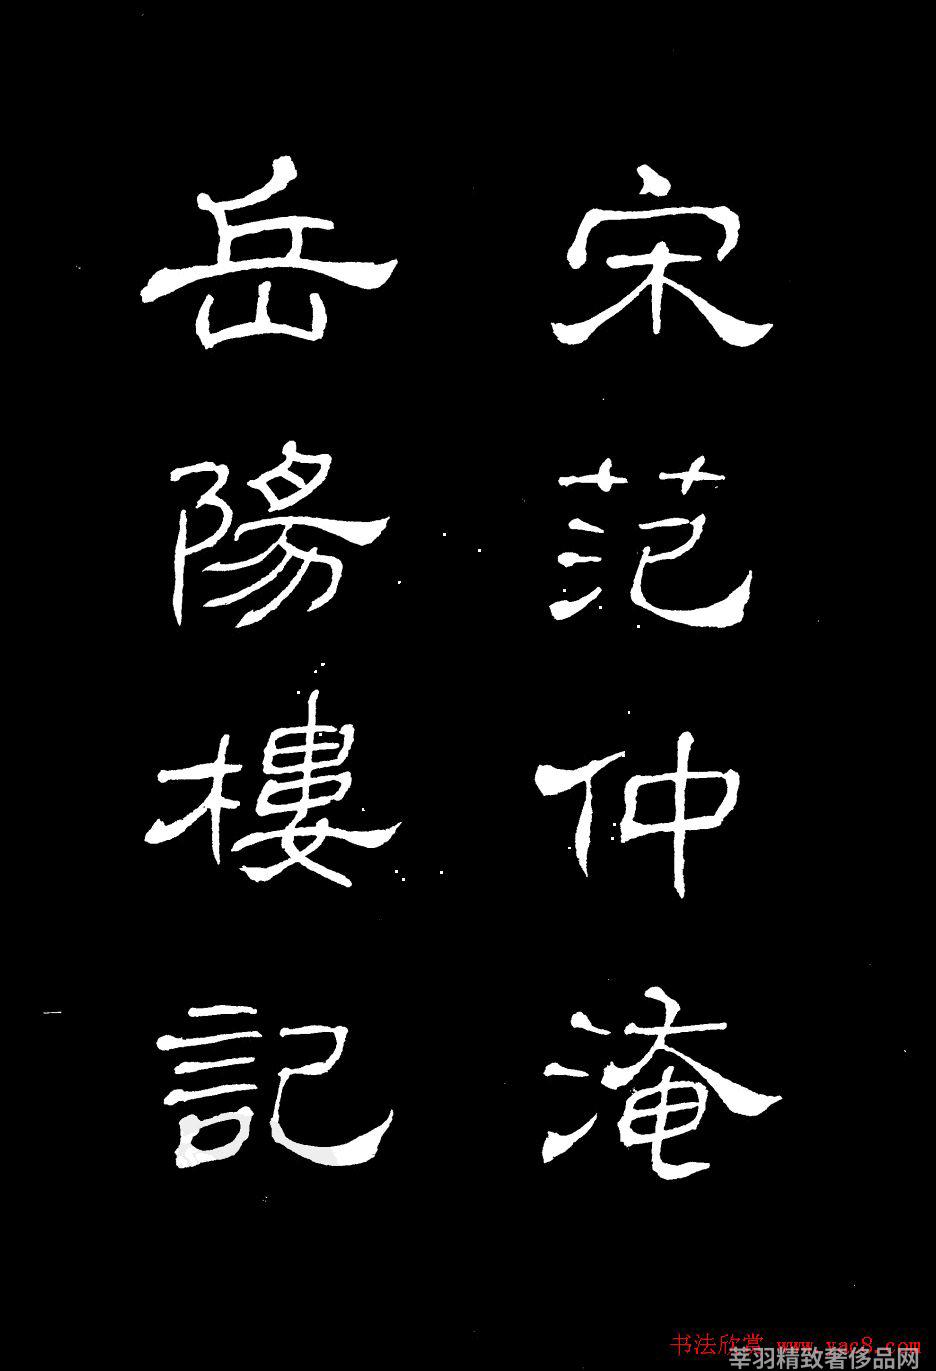 宋范仲淹
岳陽樓記
书法欣赏 www.yac8.com
莘羽精致奢侈品网